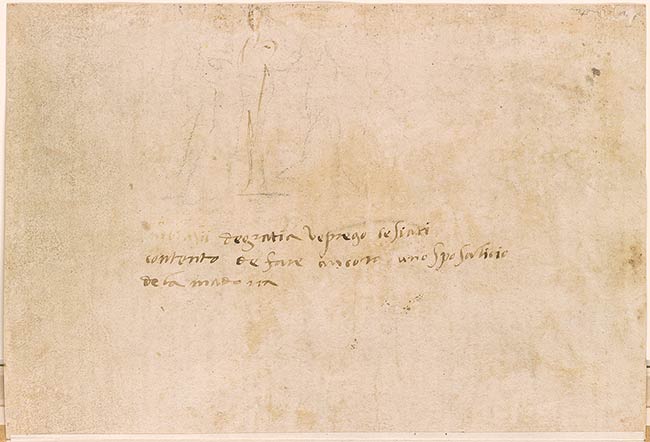 degratia ve prego se siati
contento de fare ancora uno sposalicio
de la madona